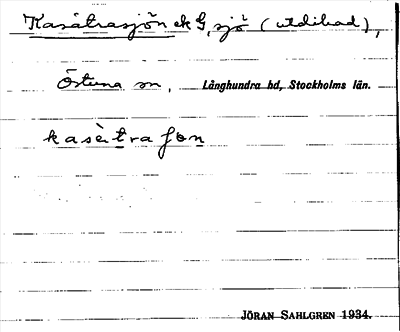 Kasätrasjön ek G, sjö (utdikad),
Östuna sn, Långhundra hd, Stockholms län.
kasètra ʃøn
JÖRAN SAHLGREN 1934.